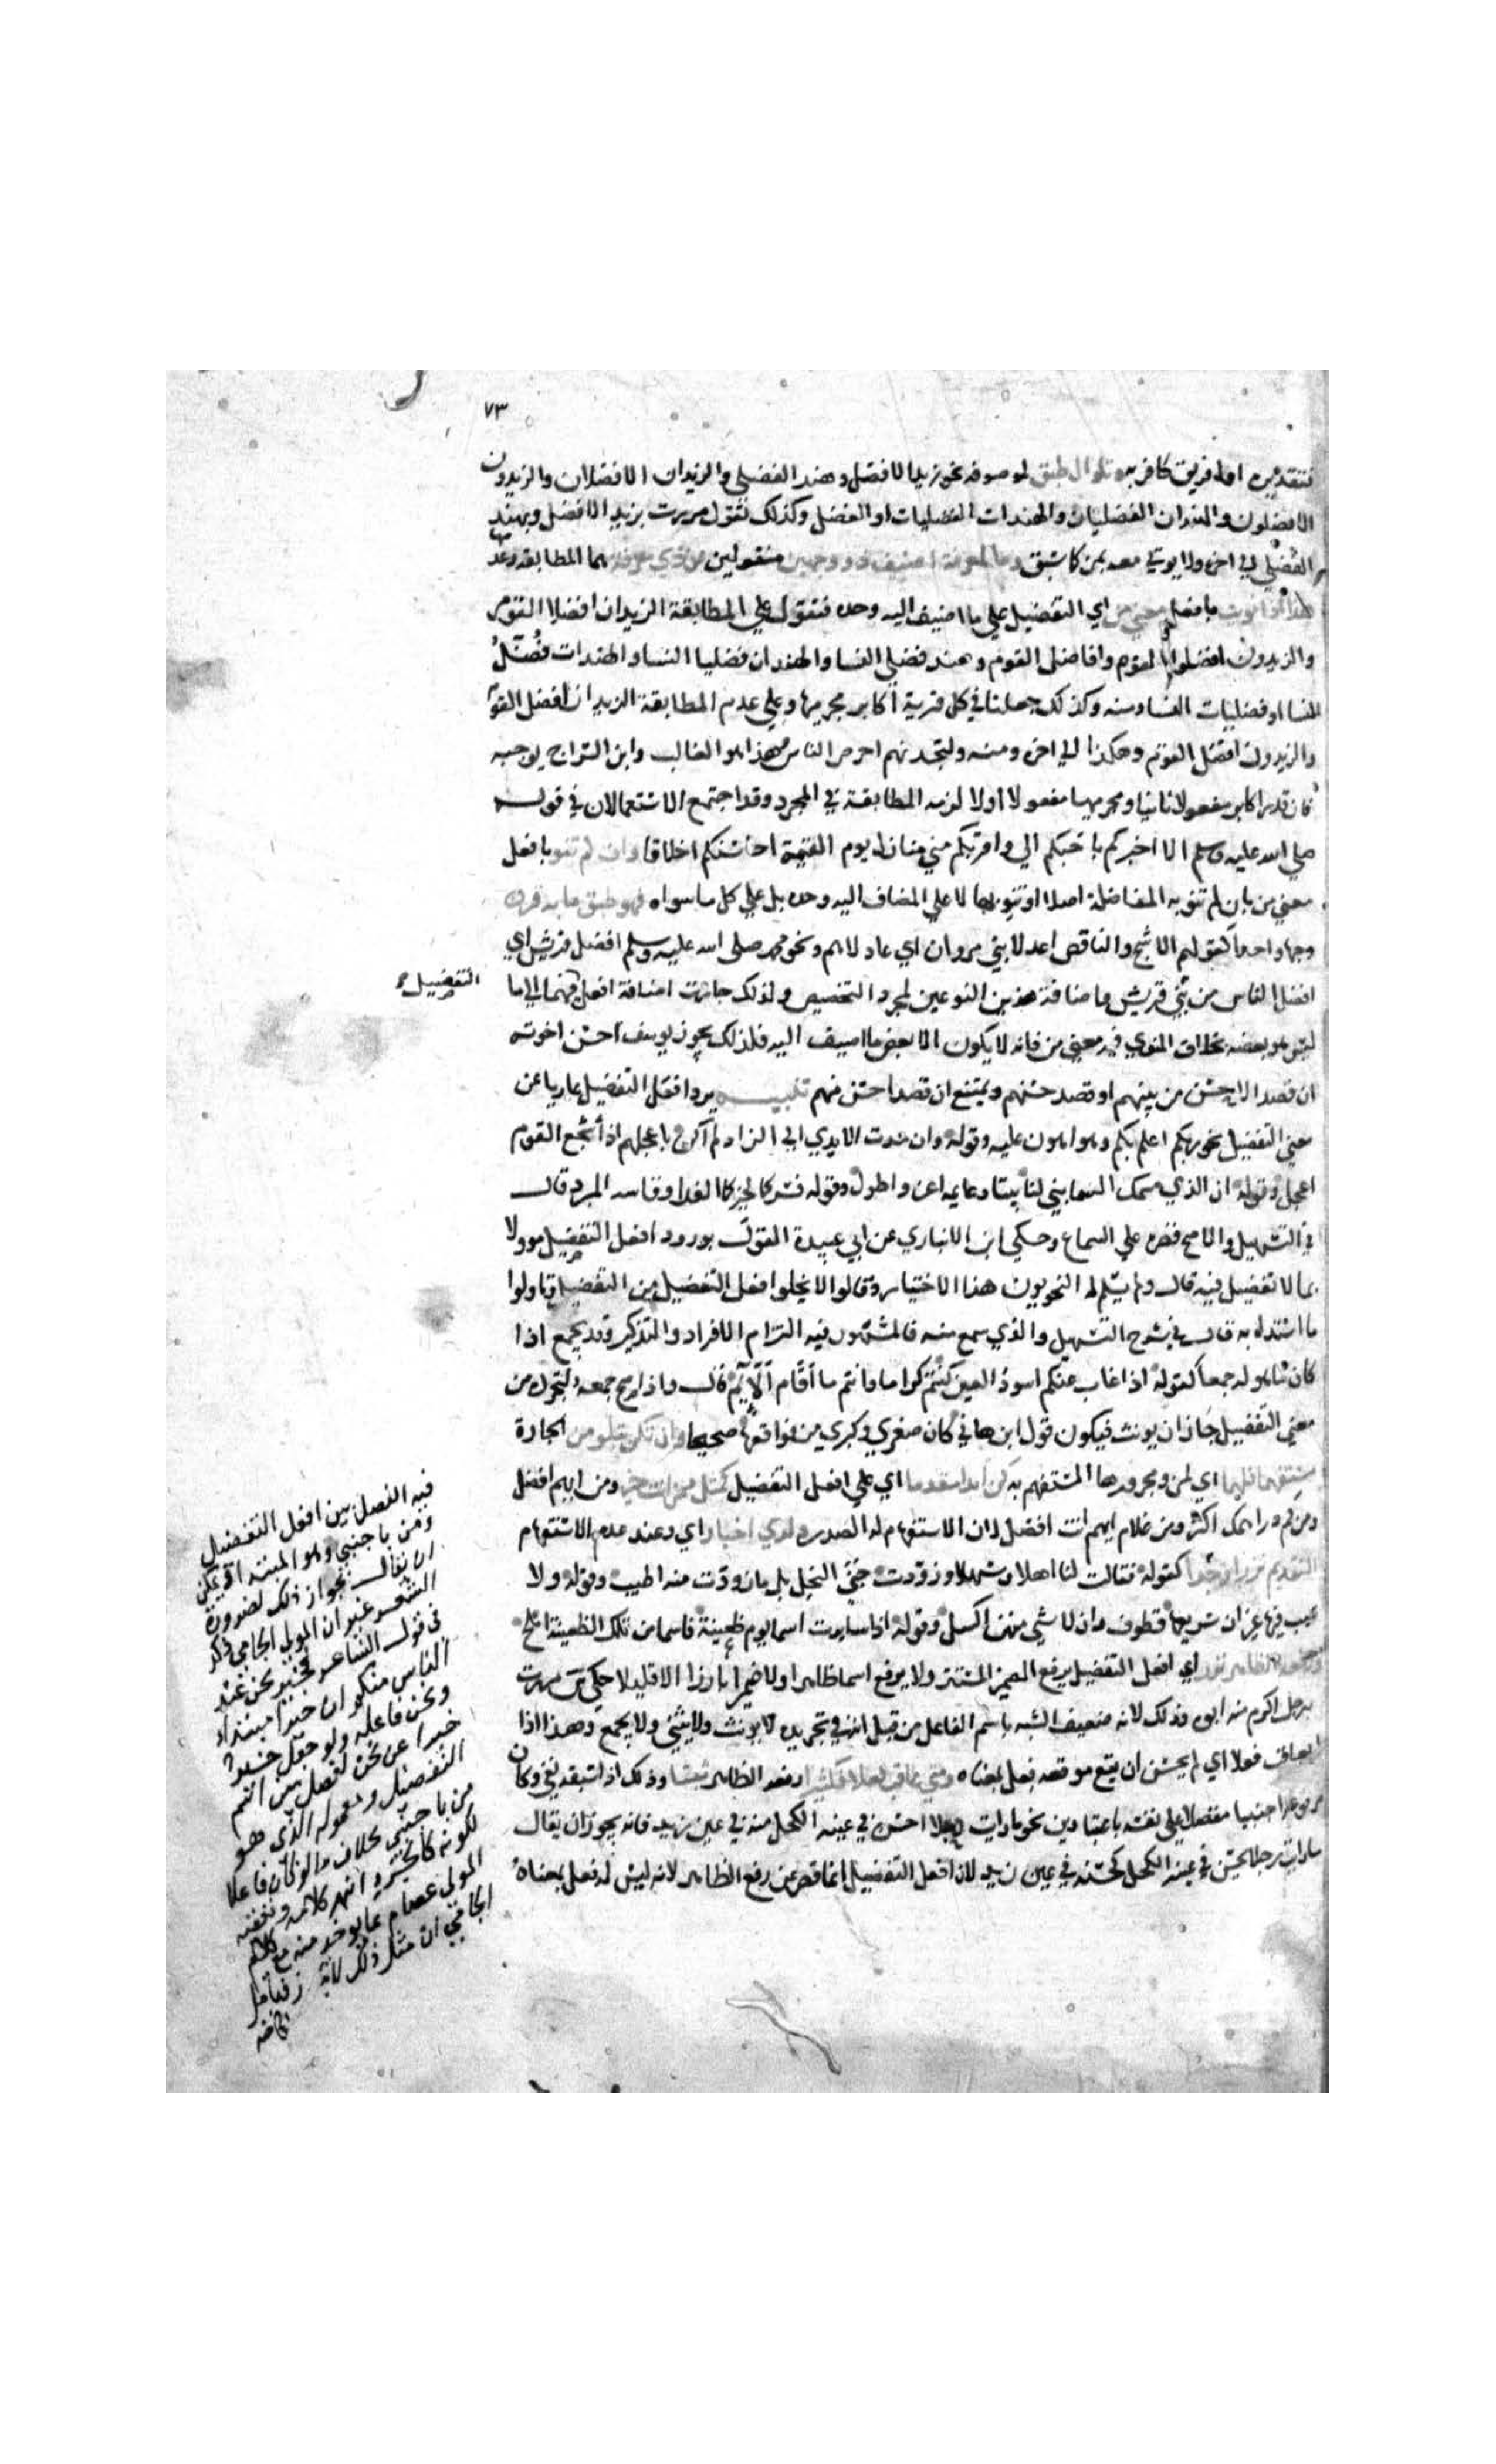 ٧٣
فتقديره اول فريق كافر به وتلو ال طبق لموصوفه نحو زيد الافضل وهند الفضلي والزيدان الافضلان والزيدون
الافضلون والهندان الفضليان والهندات الفضليات او الفضل وكذلك تقول مررت بزيد الافضل وبهند
الفضلي الي اخره ولا يوتي معه بمن كما سبق وما لمعرفة اضيف ذو وجهين منقولين عن ذي معرفة هما المطابقة وعدمها
هذا اذا نويت بافعل معني من اي التفضيل علي ما اضيف اليه وحده فتقول علي المطابقة الزيدان افضلا القوم
والزيدون افضلوا القوم وافاضل القوم وهند فضلي النسا والهندان فضليا النسا والهندات فضل
النسا او فضليات النسا ومنه وكذلك جعلنا في كل قرية اكابر مجرميها وعلي عدم المطابقة الزيدان افضل القوم
والزيدون افضل القوم وهكذا الي اخره ومنه ولتجدنهم احرص الناس وهذا هو الغالب وابن السراج يوجبه
فان قدر اكابر مفعولا ثانيا ومجرميها مفعولا اولا لزمه المطابقة في المجرد وقد اجتمع الاستعمالان في قوله
صلي الله عليه وسلم الا اخبركم باحبكم الي واقربكم مني منازل يوم القيمة احاسنكم اخلاقا وان لم تنو بافعل
معني من بان لم تنو به المفاضلة اصلا او تنويها لا علي المضاف اليه وحده بل علي كل ما سواه فهو طبق ما به قرن
وجها واحدا كقولهم الاشج والناقص اعدلا بني مروان اي عادلاهم ونحو محمد صلي الله عليه وسلم افضل قريش اي
افضل الناس من بني قريش واضافة هذين النوعين لمجرد التخصيص ولذلك جازت اضافة افعل فيهما الي ما
التفضيل
ليس هو بعضه بخلاف المنوي فيه معني من فانه لا يكون الا بعض ما اضيف اليه فلذلك يجوز يوسف احسن اخوته
ان قصد الاحسن من بينهم او قصد حسنهم ويمتنع ان قصد احسن منهم تنبيه يرد افعل التفضيل عاريا عن
معني التفضيل نحو ربكم اعلم بكم وهو اهون عليه وقوله وان مدت الايدي الي الزاد لم اكن باعجلهم اذ اشجع القوم
اعجل وقوله ان الذي سمك السما بني لنا بيتا دعايمه اعز واطول وقوله فشركما لخيركما الفدا وقاسه المبرد قال
في التسهيل والاصح قصره علي السماع وحكي ابن الانباري عن ابي عبيدة القول بورود افعل التفضيل موولا
بما لا تفضيل فيه قال ولم يسلم له النحويون هذا الاختيار وقالوا لا يخلوا افعل التفضيل من التفضيل وتاولوا
ما استدل به قال في شرح التسهيل والذي سمع منه فالمشهور فيه التزام الافراد والتذكير وقد يجمع اذا
كان ما هو له جمعا كقوله اذا غاب عنكم اسود العين كنتم كراما وانتم ما اقام الايم قال واذا صح جمعه لتجرده من
معني التفضيل جاز ان يونث فيكون قول ابن هاني كان صغري وكبري من فواقعها صحيحا وان تكن بتلو من الجارة
مستفهما فلهما اي لمن ومجرورها المستفهم به كن ابدا مقدما اي علي افعل التفضيل كمثل ممن انت خير ومن ايهم افضل
ومن كم دراهمك اكثر ومن غلام ايهم انت افضل لان الاستفهام له الصدر ولدي اخبار اي وعند عدم الاستفهام
التقديم نزرا وجدا كقوله فقالت لنا اهلا وسهلا وزودت جني النحل بل ما زودت منه اطيب وقوله ولا
عيب فيها غير ان سريعها قطوف وان لا شي منهن اكسل وقوله اذا سايرت اسما يوم ظعينة فاسما من تلك الظعينة املح
ورفعه الظاهر نزر اي افعل التفضيل يرفع الضمير المستتر ولا يرفع اسما ظاهرا ولا ضميرا بارزا الا قليلا حكي س مررت
برجل اكرم منه ابوه وذلك لانه ضعيف الشبه باسم الفاعل من قبل انه في تجريده لا يونث ولا يثني ولا يجمع وهذا اذا
لم يعاقب فعلا اي لم يحسن ان يقع موقعه فعل بمعناه ومتي عاقب فعلا فكثيرا رفعه الظاهر ثبتا وذلك اذا سبقه نفي وكان
مرفوعه اجنبيا مفضلا علي نفسه باعتبارين نحو ما رايت رجلا احسن في عينه الكحل منه في عين زيد فانه يجوز ان يقال
ما رايت رجلا يحسن في عينه الكحل كحسنه في عين زيد لان افعل التفضيل انما قصر عن رفع الظاهر لانه ليس له فعل بمعناه
فيه الفصل بين افعل التفضيل
ومن باجنبي وهو المبتدا
ان يقال بجواز ذلك لضرورة
الشعر غير ان المولي الجامي ذكر
في قول الشاعر فخير نحن عند
الناس منكم ان خير مبتدا
ونحن فاعله ولو جعل خير
خبرا عن نحن لفصل بين اسم
التفضيل ومعموله الذي هو
من باجنبي بخلاف ما لو كان فاعلا
لكونه كالجزء انتهي كلامه
المولي عصام